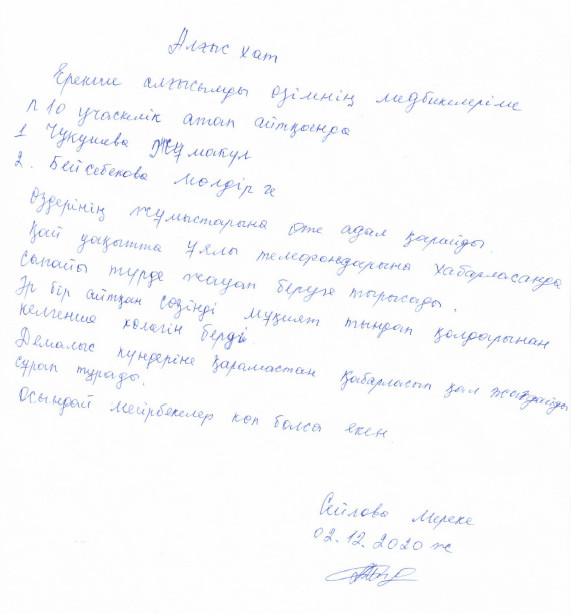 Алғыс хат
Ерекше алғысымды өзімнің медбикелеріме
п 10 учаскелік атап айтқанда
1 Чукушева Жұмакул
2. Бейсебекова Молдір ге
Өздерінің жұмыстарына өте адал қарайды.
Қай уақытта ұялы телефондарына хабарласанда
сыпайы түрде жауап беруге тырысады.
Әр бір айтқан сөзіңді мұқият тыңдап қолдарынан
келгенше көмегін берді.
Демалыс күндеріне қарамастан хабарласып қал жағдайды
сұрап тұрады.
Осындай мейрбекелер көп болса екен.
Сейлова Мереке
02.12.2020 ж